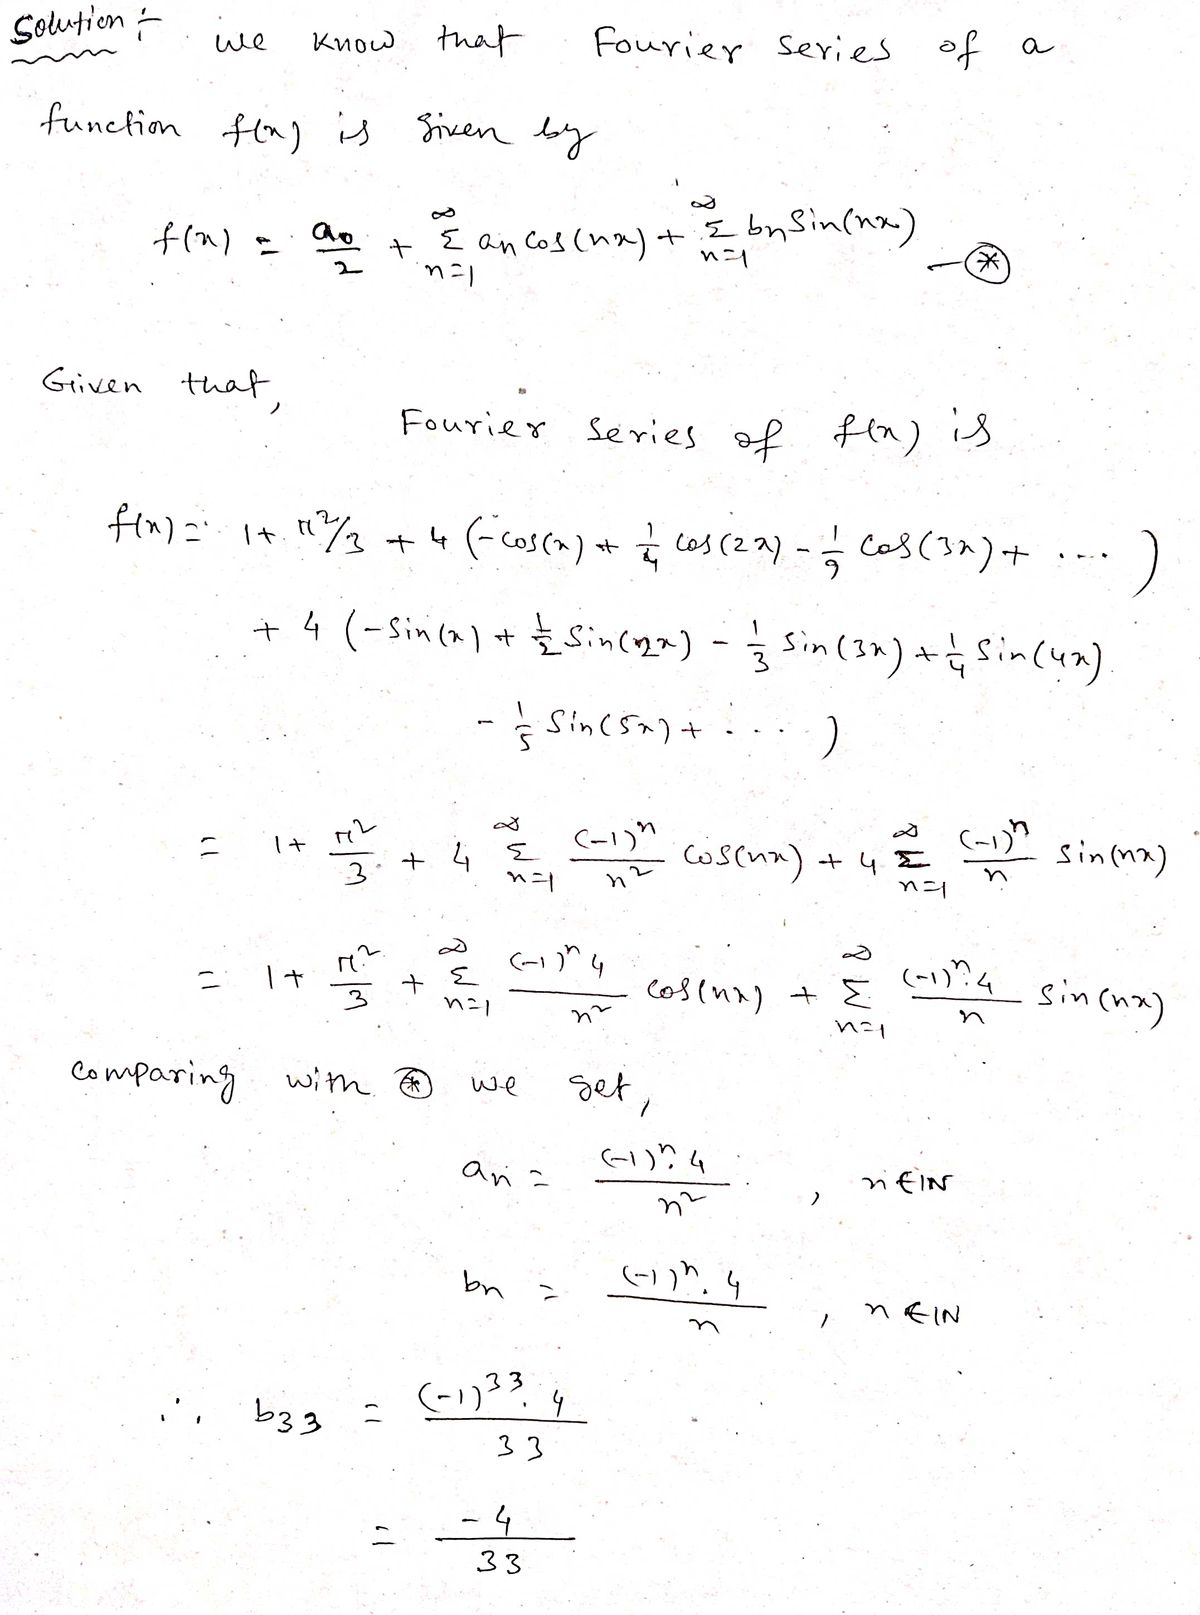 Solution :-  we know that Fourier series of a
function f(x) is given by
f(x) = a₀/2 + ∞Σn=1 an cos(nx) + ∞Σn=1 bn sin(nx) —⊛
Given that,
Fourier series of f(x) is
f(x) = 1 + π²/3 + 4 (-cos(x) + 1/4 cos(2x) - 1/9 cos(3x) + .... )
+ 4 (-sin(x) + 1/2 sin(2x) - 1/3 sin(3x) + 1/4 sin(4x)
- 1/5 sin(5x) + ..... )
= 1 + π²/3 + 4 ∞Σn=1 (-1)ⁿ/n² cos(nx) + 4 ∞Σn=1 (-1)ⁿ/n sin(nx)
= 1 + π²/3 + ∞Σn=1 (-1)ⁿ 4/n² cos(nx) + ∞Σn=1 (-1)ⁿ.4/n sin(nx)
comparing with ⊛ we get,
an = (-1)ⁿ.4/n² , n∈IN
bn = (-1)ⁿ.4/n , n∈IN
∴ b33 = (-1)³³.4/33
= -4/33